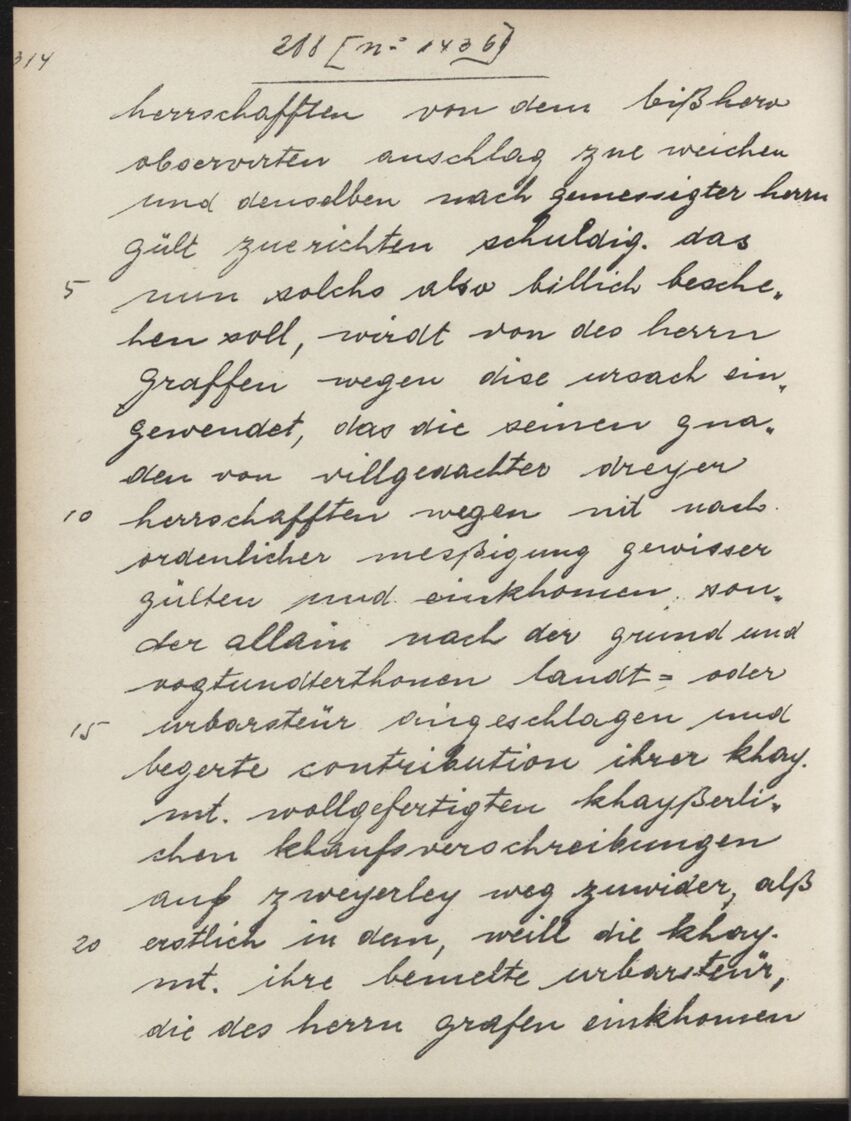 314
288 [n° 1436]
herrschafften von dem bißhero
observirten anschlag zue weichen
und denselben nach gemessigter herrn
gült zue richten schuldig. das
5 nun solchs also billich besche„
hen soll, wirdt von des herrn
graffen wegen dise ursach ein„
gewendet, das die seinen gna„
den von villgedachter dreyer
10 herrschafften wegen nit nach
ordenlicher mesßigung gewisser
gülten und einkhomen, son„
der allain nach der grund und
vogtundterthonen landt= oder
15 urbarsteür angeschlagen und
begerte contribution ihrer khay.
mt. wollgefertigten khayßerli„
chen khaufsverschreibungen
auf zweyerley weg zuwider, alß
20 erstlich in dem, weill die khay.
mt. ihre bemelte urbarsteür,
die des herrn grafen einkhomen